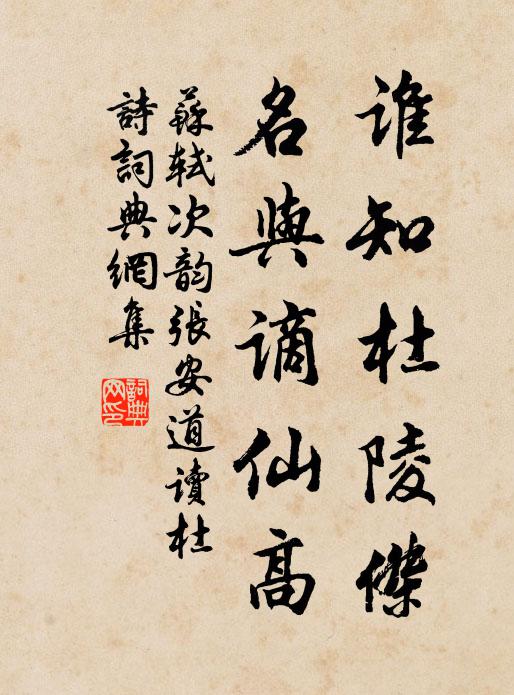 谁知杜陵傑
名與謫仙高
蘇軾次韵張安道讀杜
詩詞典網集
詞典網印